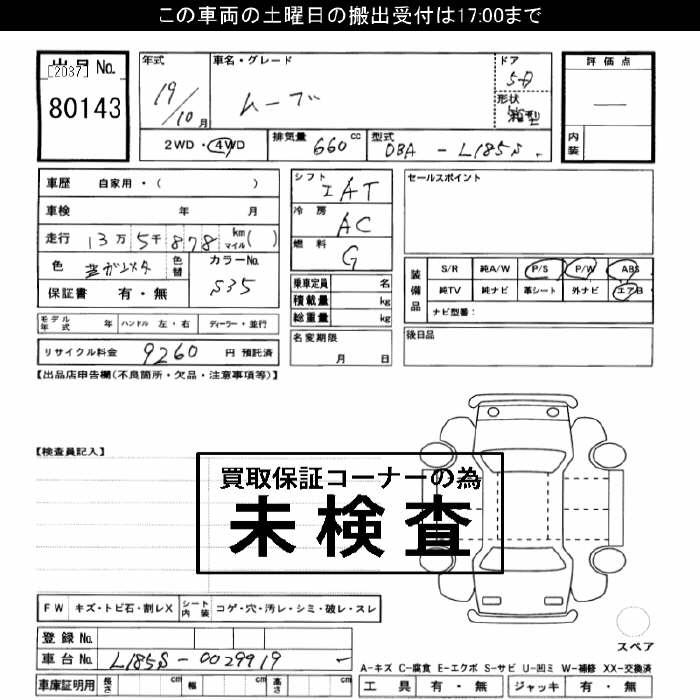 この車両の土曜日の搬出受付は17:00まで
出品No.
[2037]
80143
年式
19/10月
車名・グレード
ムーブ
ドア
5D
形状
箱型
評価点
内装
2WD・4WD
排気量 660cc
型式 DBA - L185S
車歴 自家用・( )
車検 年 月
走行 13万5千878 km マイル( )
色
色替
カラーNo. S35
保証書 有・無
シフト IAT
冷房 AC
燃料 G
乗車定員 名
積載量 kg
総重量 kg
名変期限 月 日
セールスポイント
装備品
S/R 純A/W P/S P/W ABS
純TV 純ナビ 革シート 外ナビ エアB
ナビ型番:
後日品
モデル年式 年 ハンドル 左・右 ディーラー・並行
リサイクル料金 9260 円 預託済
【出品店申告欄(不良箇所・欠品・注意事項等)】
【検査員記入】
買取保証コーナーの為
未検査
FW キズ・トビ石・割レX シート内装 コゲ・穴・汚レ・シミ・破レ・スレ
登録No.
車台No. L185S-0029919
車庫証明用 長さ cm 幅 cm 高さ cm
スペア
A-キズ C-腐食 E-エクボ S-サビ U-凹ミ W-補修 XX-交換済
工具 有・無 ジャッキ 有・無